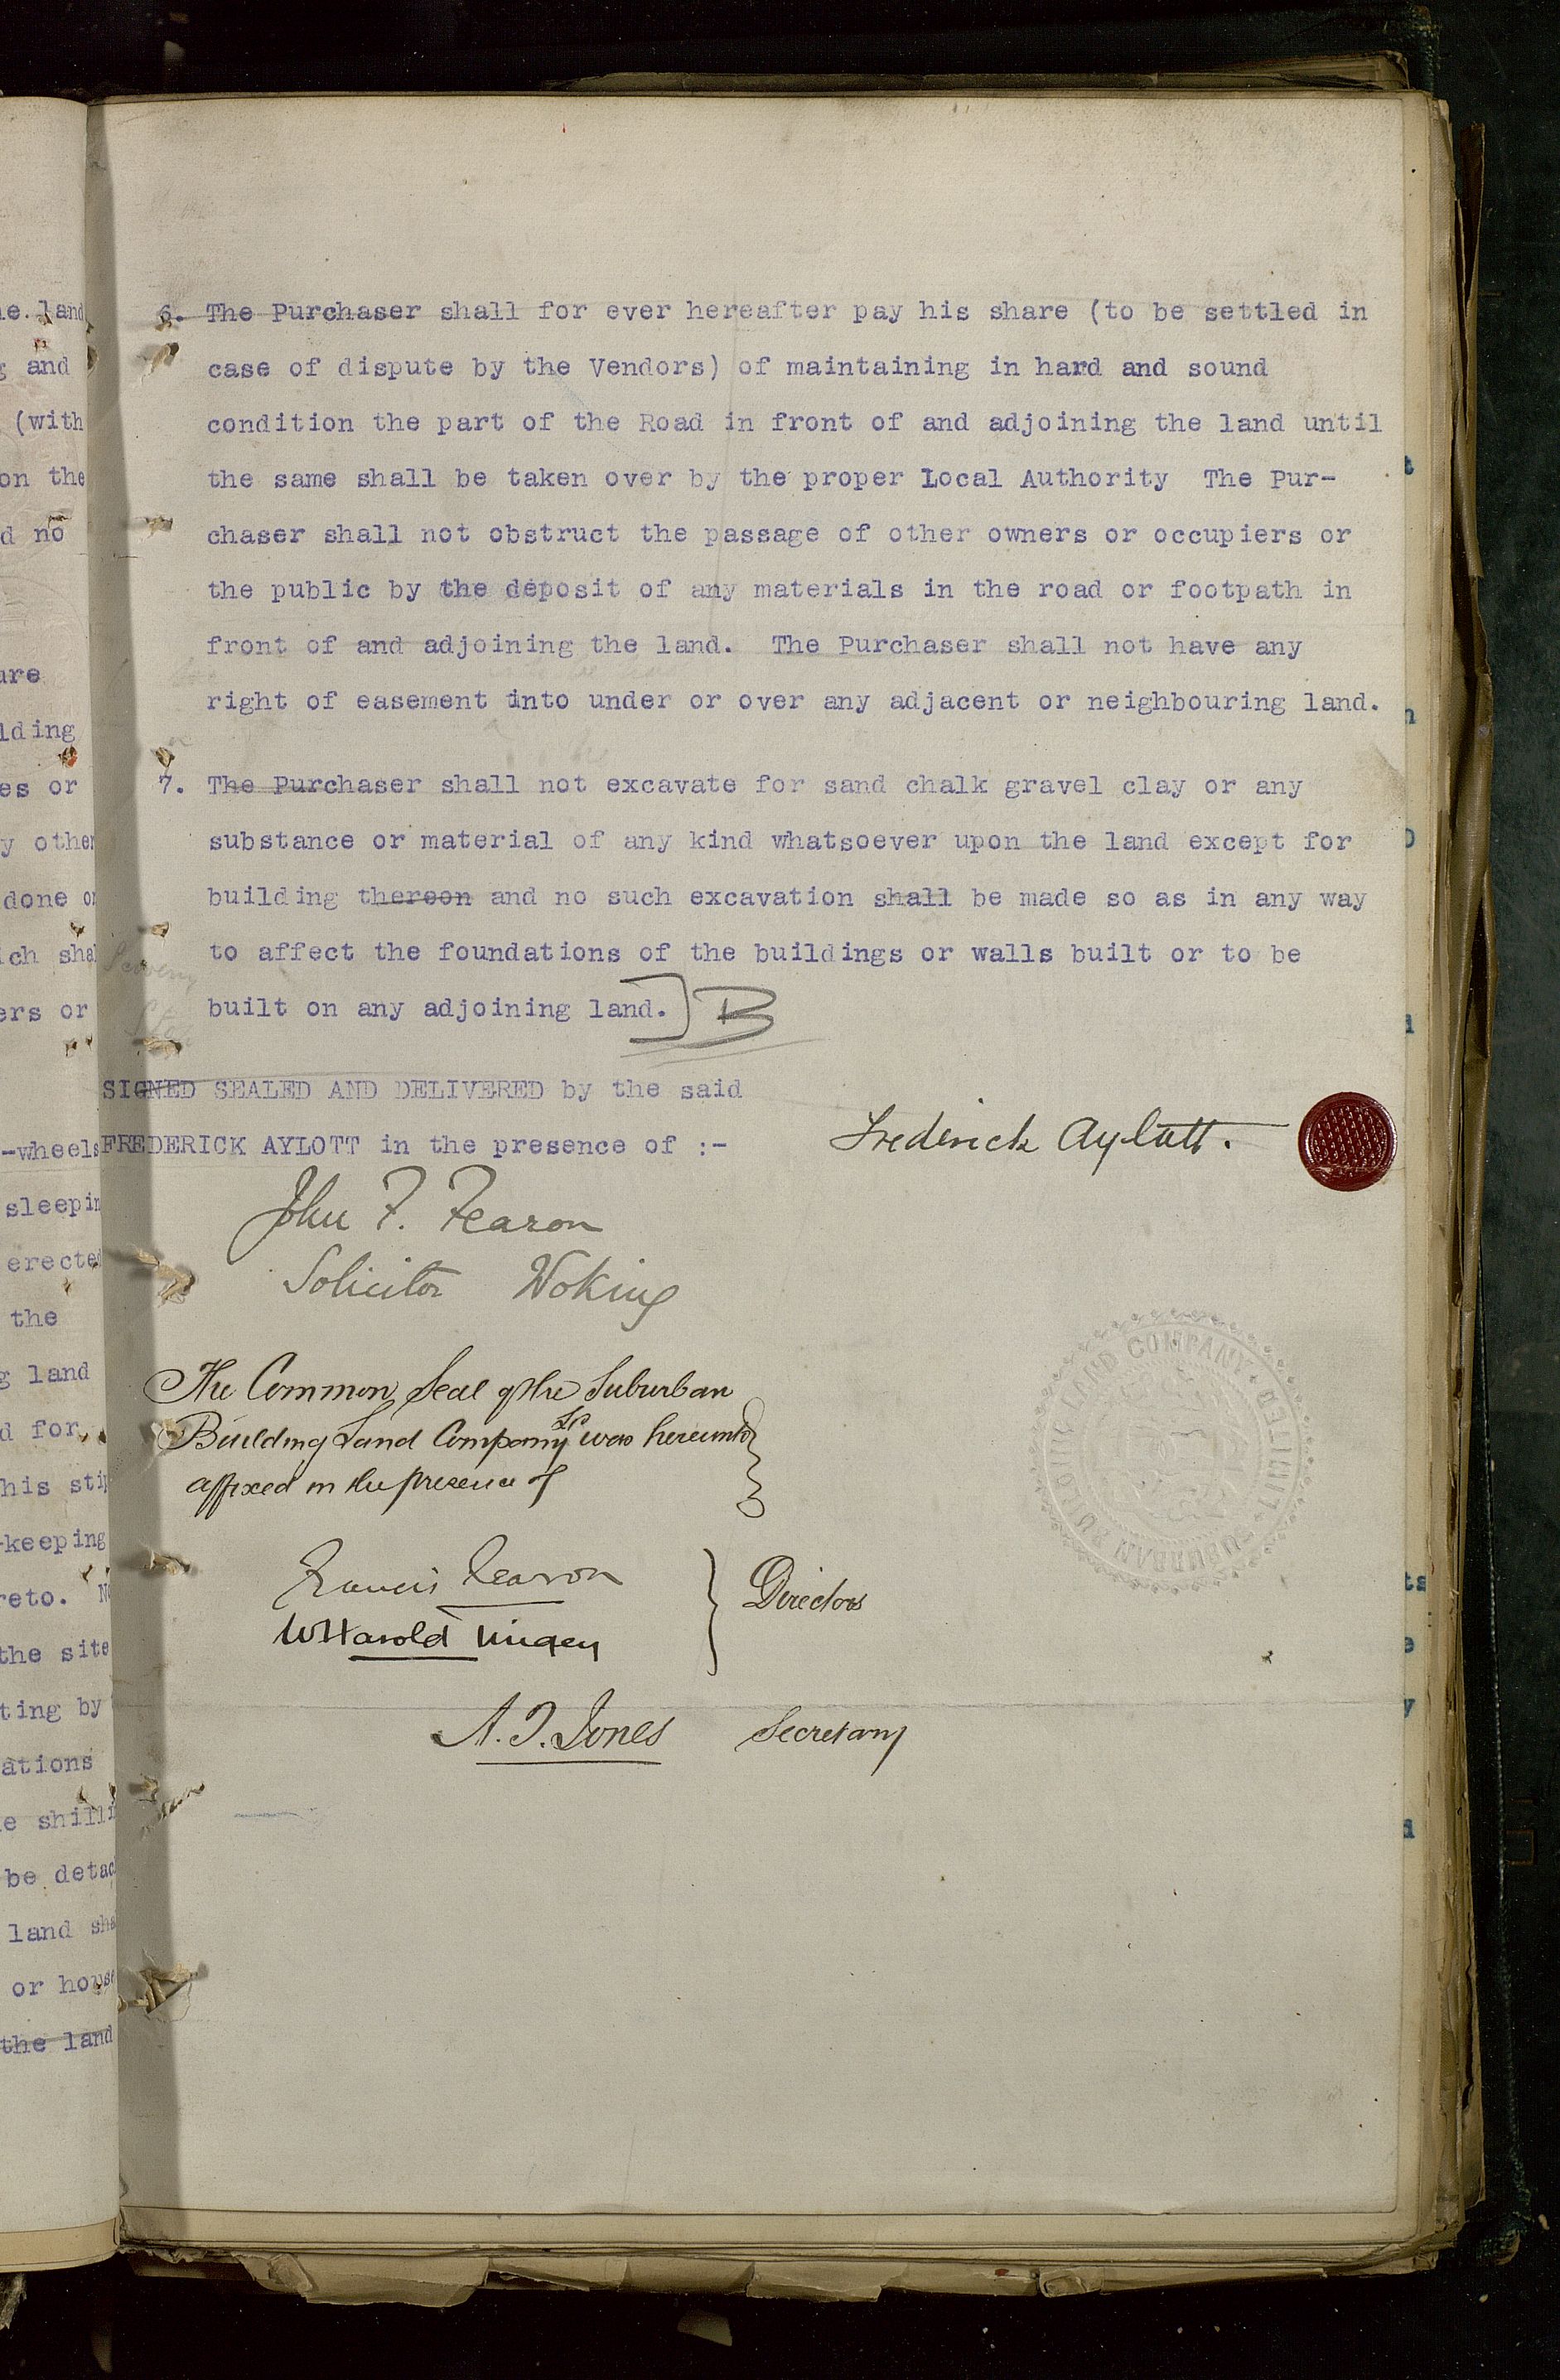 6. The Purchaser shall for ever hereafter pay his share (to be settled in
case of dispute by the Vendors) of maintaining in hard and sound
condition the part of the Road in front of and adjoining the land until
the same shall be taken over by the proper Local Authority The Pur-
chaser shall not obstruct the passage of other owners or occupiers or
the public by the deposit of any materials in the road or footpath in
front of and adjoining the land. The Purchaser shall not have any
right of easement into under or over any adjacent or neighbouring land.
7. The Purchaser shall not excavate for sand chalk gravel clay or any
substance or material of any kind whatsoever upon the land except for
building thereon and no such excavation shall be made so as in any way
to affect the foundations of the buildings or walls built or to be
built on any adjoining land.] B
SIGNED SEALED AND DELIVERED by the said
FREDERICK AYLOTT in the presence of :-
Frederick Aylott.
John F. Fearon
Solicitor Woking
The Common Seal of the Suburban
Building Land Company Ld was hereunto
affixed in the presence of
SUBURBAN BUILDING LAND COMPANY LIMITED
Francis Fearon
W Harold
Directors
A. J. Jones Secretary
he land
g and
(with
on the
d no
ure
lding
es or
y other
done on
ich sha
ers or
-wheels
sleepin
erected
the
g land
d for
his stip
-keeping
reto. No
the site
ting by
ations
e shilli
be detac
land sha
or house
the land